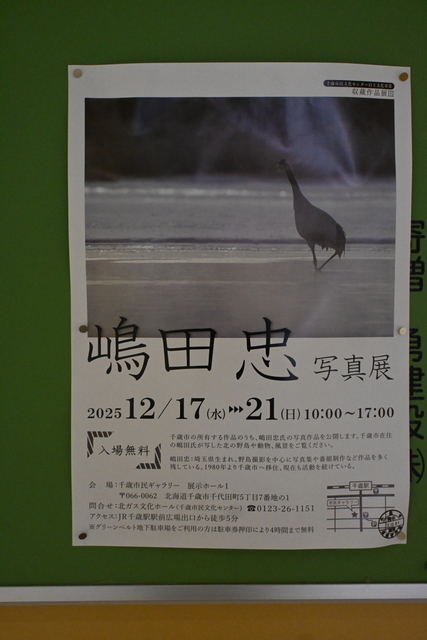 収蔵作品展Ⅲ
嶋田忠 写真展
2025 12/17(水)▶▶▶21(日)10:00～17:00
入場無料
千歳市の所有する作品のうち、嶋田忠氏の写真作品を公開します。千歳市在住
の嶋田氏が写した北の野鳥や動物、風景をご覧ください。
嶋田忠:埼玉県生まれ。野鳥撮影を中心に写真集や番組制作など作品を多く
残している。1980年より千歳市へ移住、現在も活動を続けている。
会　場:千歳市民ギャラリー　展示ホール1
〒066-0062　北海道千歳市千代田町5丁目7番地の1
問合せ:北ガス文化ホール(千歳市民文化センター) ☎0123-26-1151
アクセス:JR千歳駅駅前広場出口から徒歩5分
※グリーンベルト地下駐車場をご利用の方は駐車券押印により4時間まで無料
千歳駅
寄贈　勇建設㈱